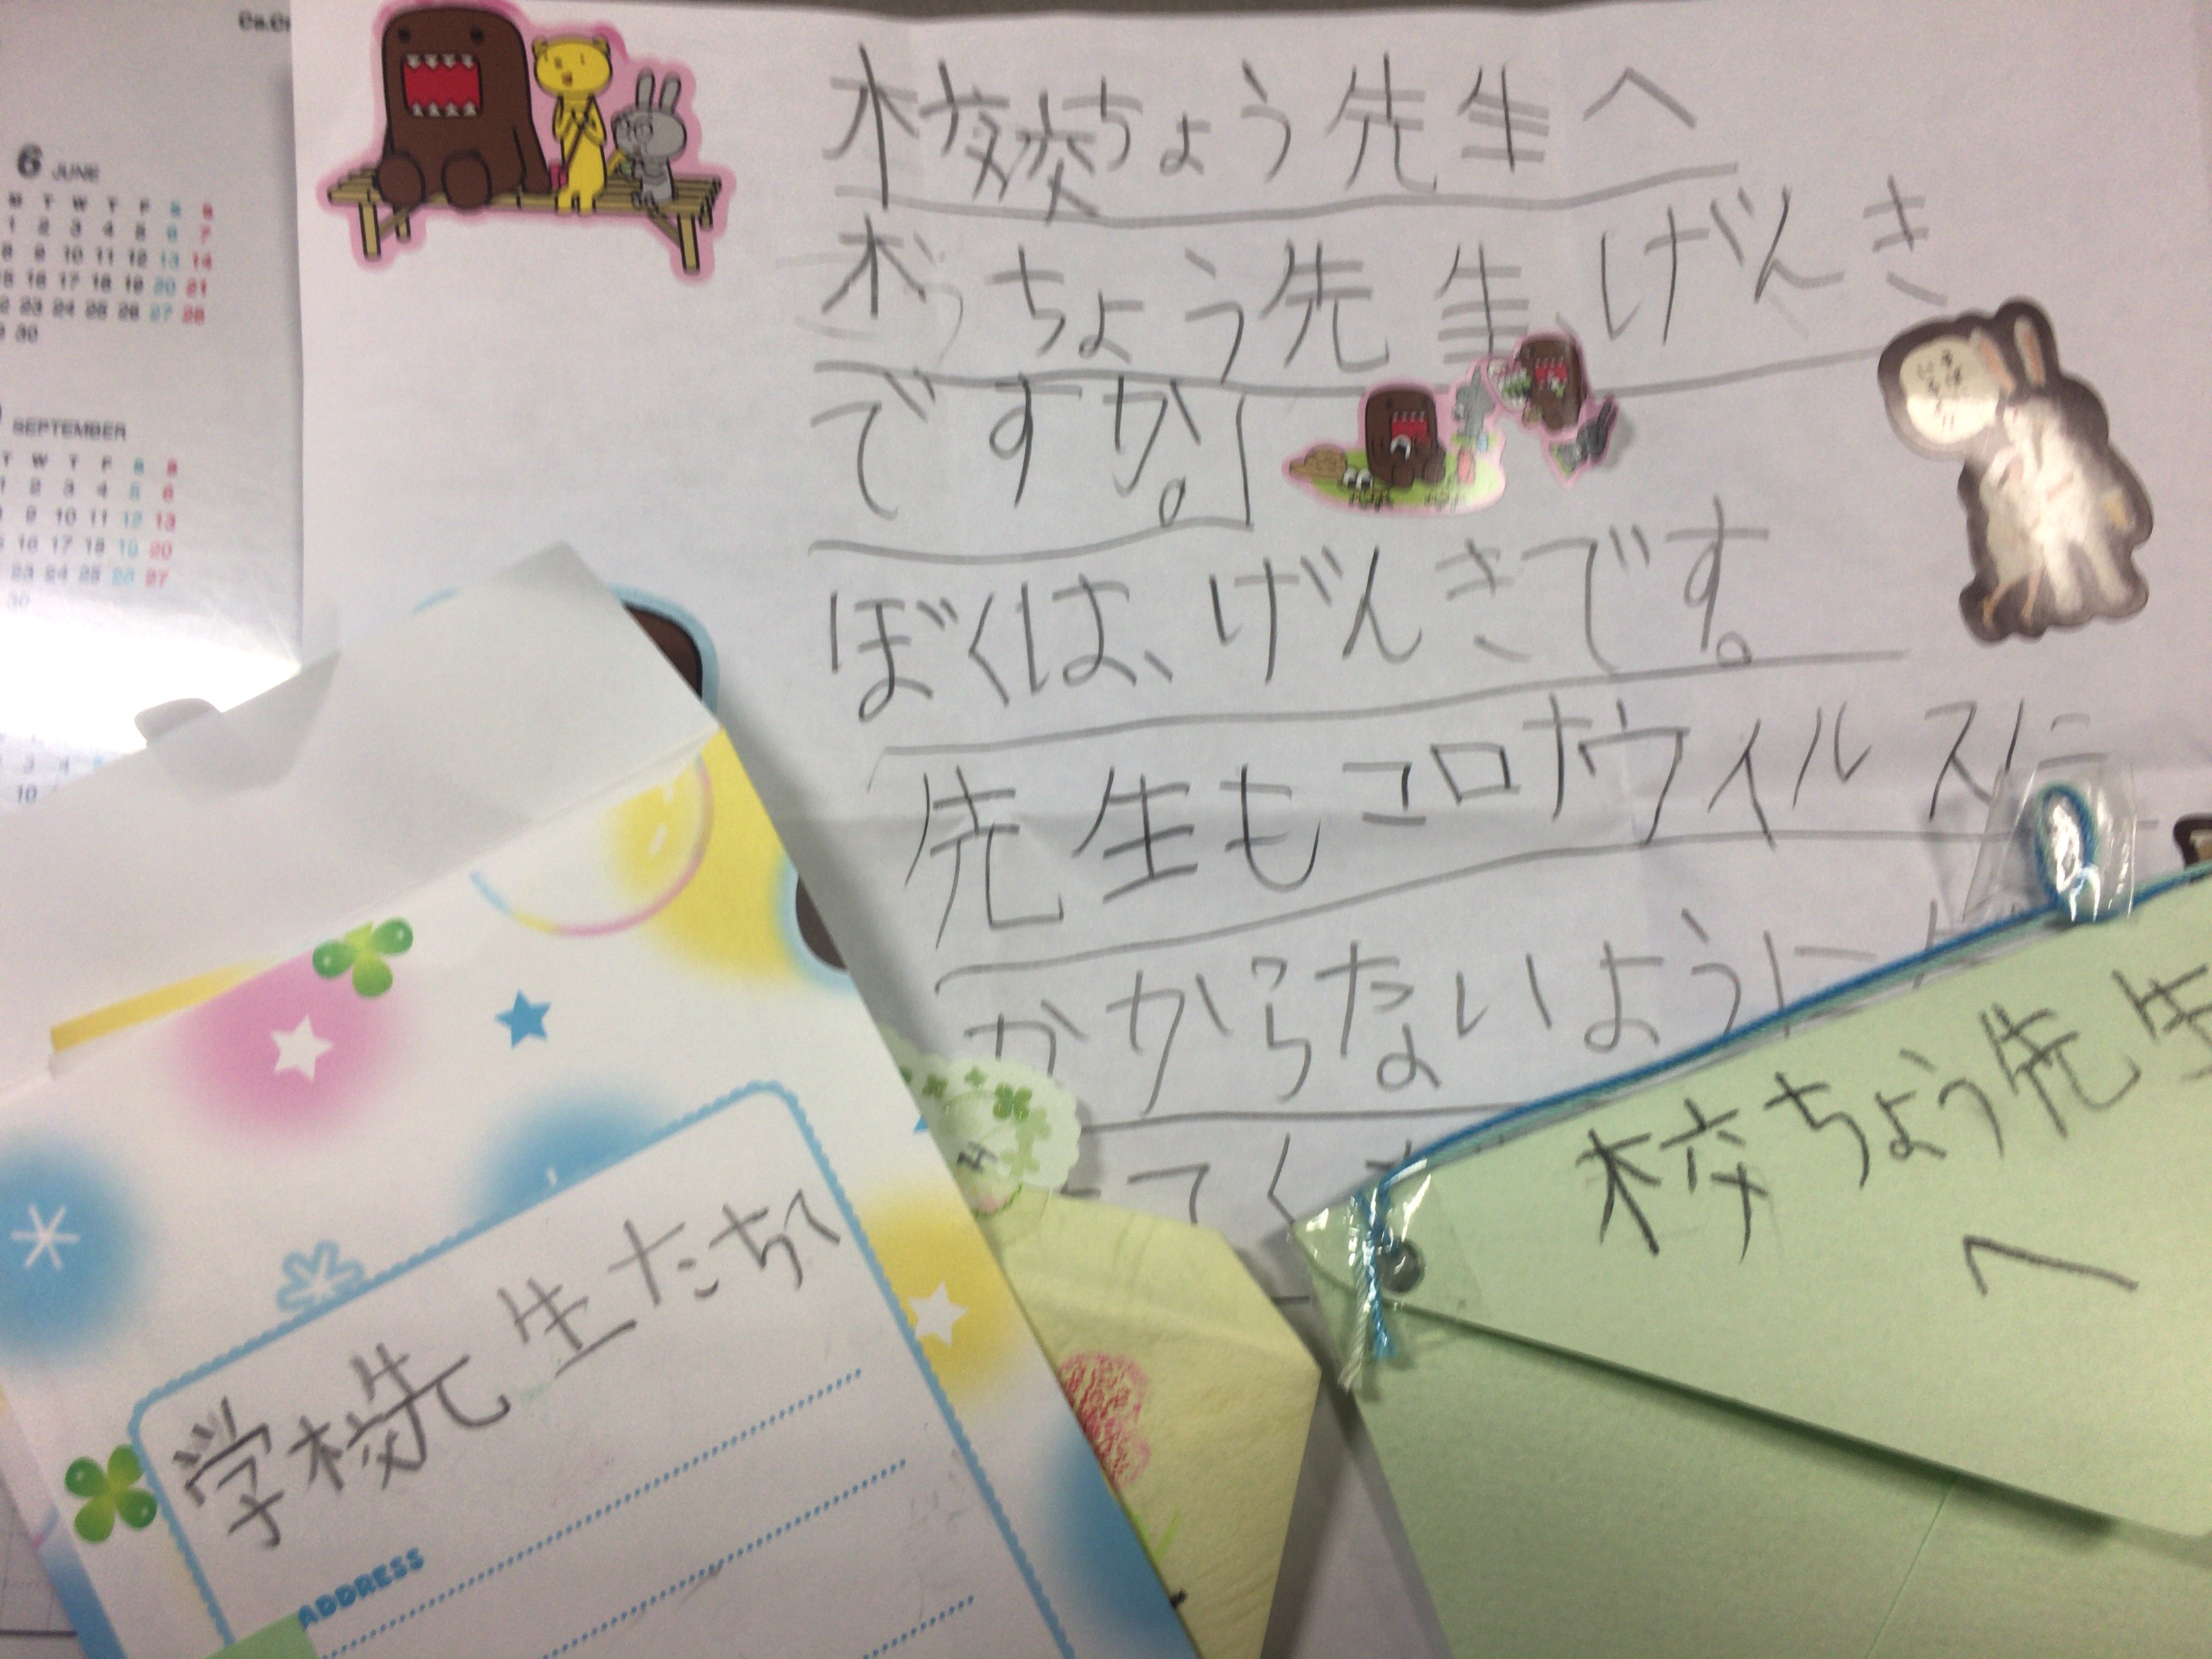 校ちょう先生へ
校ちょう先生、げんき
ですか。」
ぼくは、げんきです。
先生もコロナウィルスに
かからないように
てく
校ちょう先生
へ
学校先生たちへ
ADDRESS
6 JUNE
M T W T F S S
1 2 3 4 5 6 7
8 9 10 11 12 13 14
15 16 17 18 19 20 21
22 23 24 25 26 27 28
29 30
SEPTEMBER
T W T F S S
1 2 3 4 5 6
8 9 10 11 12 13
15 16 17 18 19 20
22 23 24 25 26 27
30
3 4
10